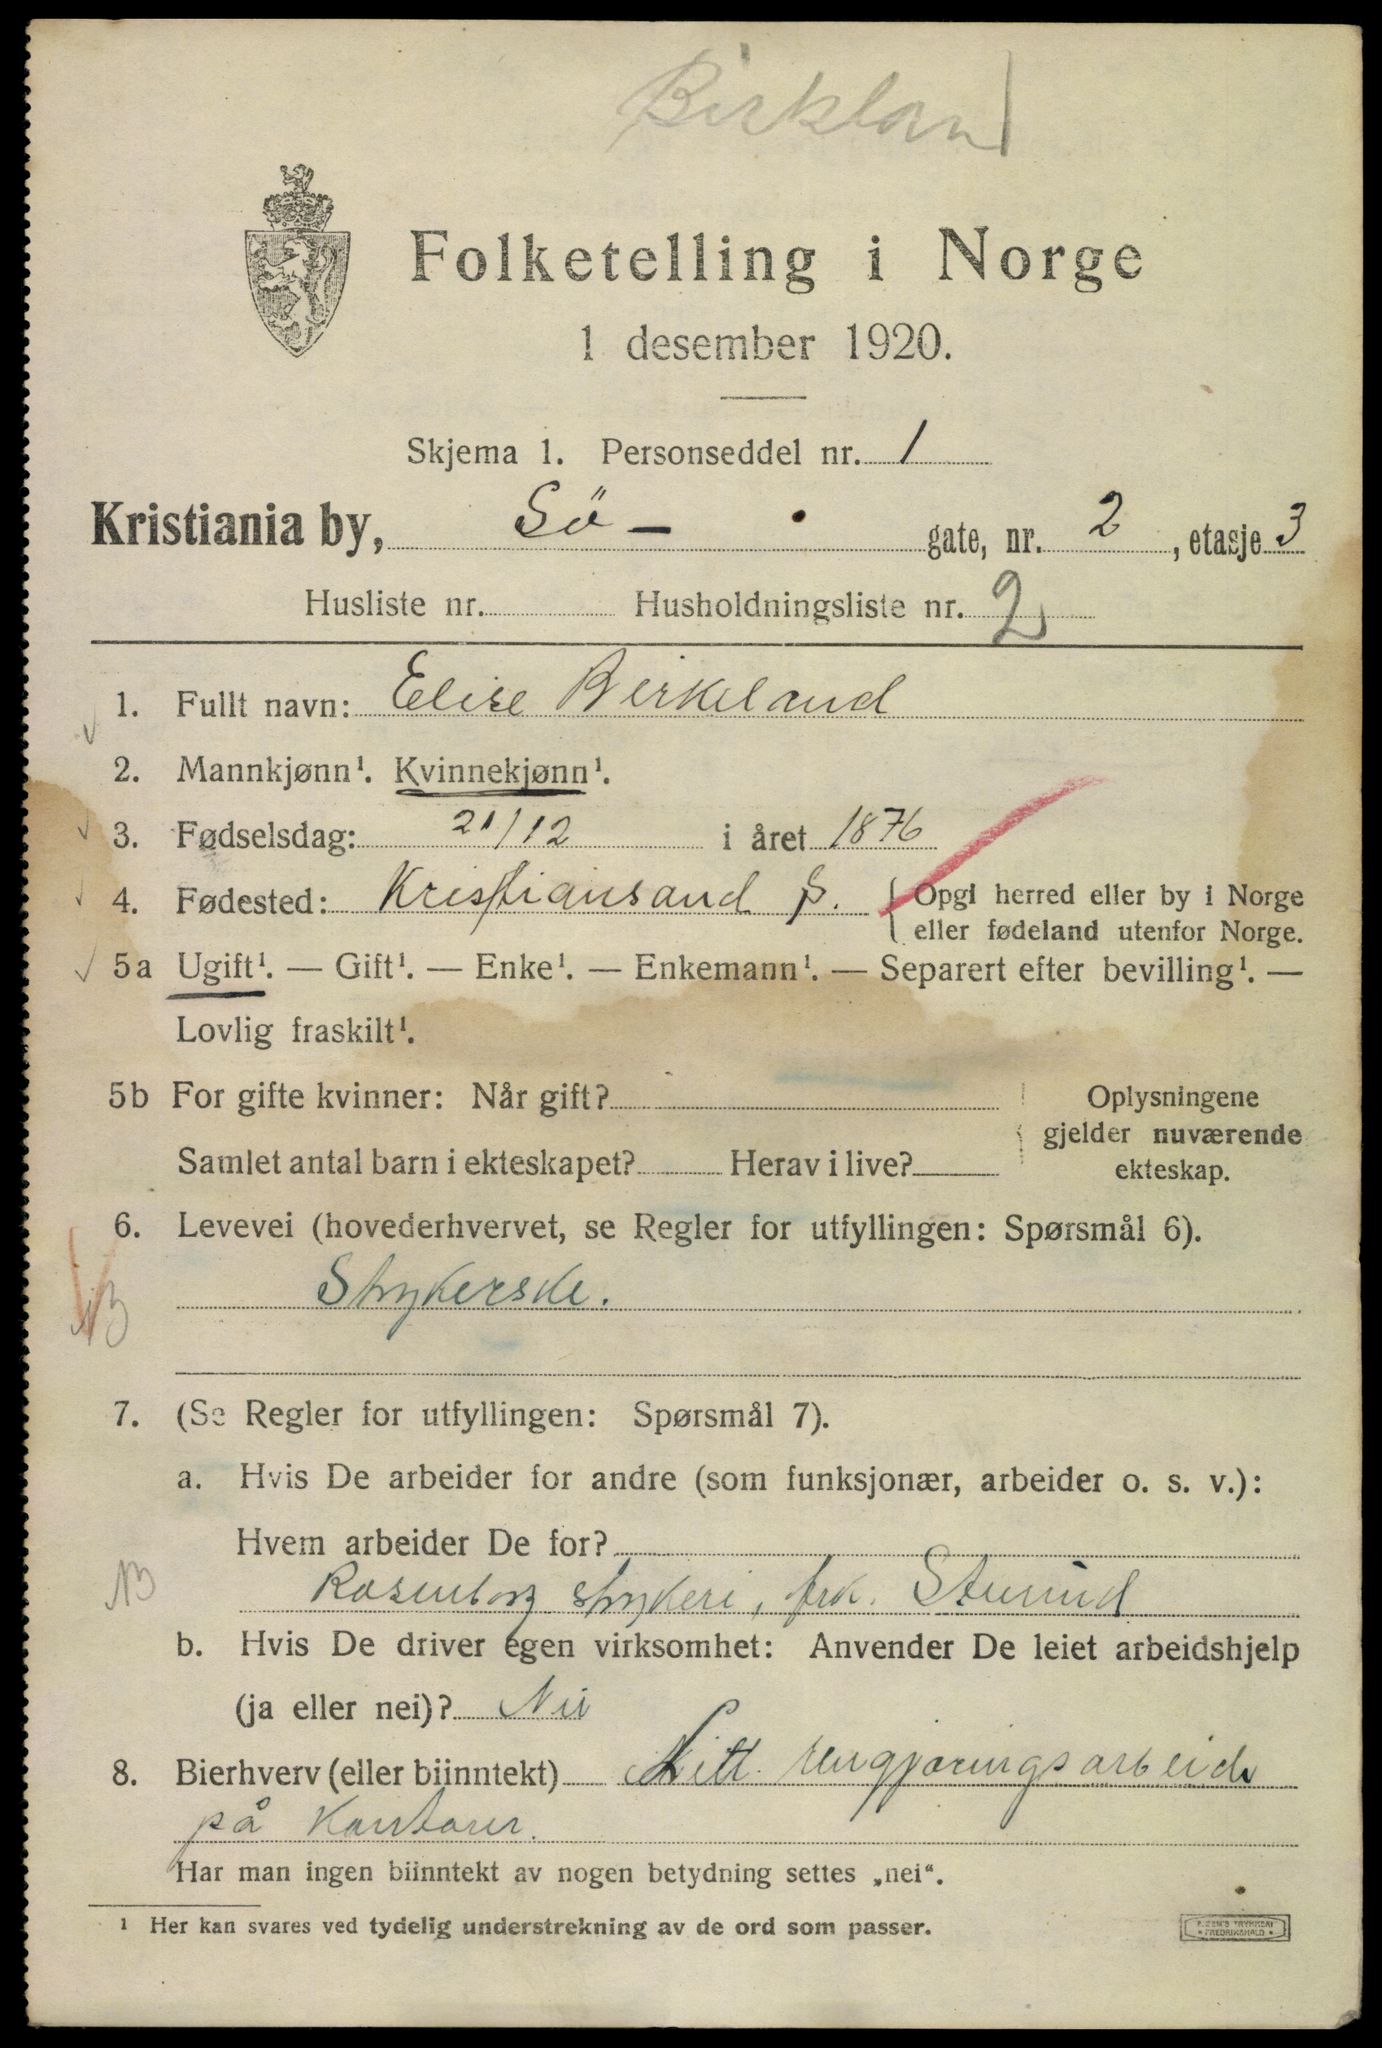 Birkland
Folketelling i Norge
1 desember 1920.
Skjema 1. Personseddel nr. 1
Kristiania by, Sö- gate, nr. 2, etasje 3
Husliste nr. Husholdningsliste nr. 2
1. Fullt navn: Elise Birkeland
2. Mannkjønn¹. Kvinnekjønn¹.
3. Fødselsdag: 21/12 i året 1876
4. Fødested: Kristiansand S. Opgi herred eller by i Norge
eller fødeland utenfor Norge.
5a Ugift¹. — Gift¹. — Enke¹. — Enkemann¹. — Separert efter bevilling¹. —
Lovlig fraskilt¹.
5b For gifte kvinner: Når gift? Oplysningene
gjelder nuværende
Samlet antal barn i ekteskapet? Herav i live? ekteskap.
6. Levevei (hovederhvervet, se Regler for utfyllingen: Spørsmål 6).
NB Strykerske.
7. (Se Regler for utfyllingen: Spørsmål 7).
a. Hvis De arbeider for andre (som funksjonær, arbeider o. s. v.):
Hvem arbeider De for?
NB Rosenborg strykeri, frk.
b. Hvis De driver egen virksomhet: Anvender De leiet arbeidshjelp
(ja eller nei)? Nei
8. Bierhverv (eller biinntekt) Litt rengjøringsarbeide
på Kontorer.
Har man ingen biinntekt av nogen betydning settes „nei“.
¹ Her kan svares ved tydelig understrekning av de ord som passer.
TRYKKERI
FREDRIKSHALD